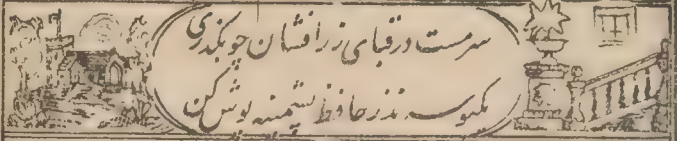 سرمست در قبای زرافشان چو بگذری
یکبوسه نذر حافظ پشمینه پوش کن